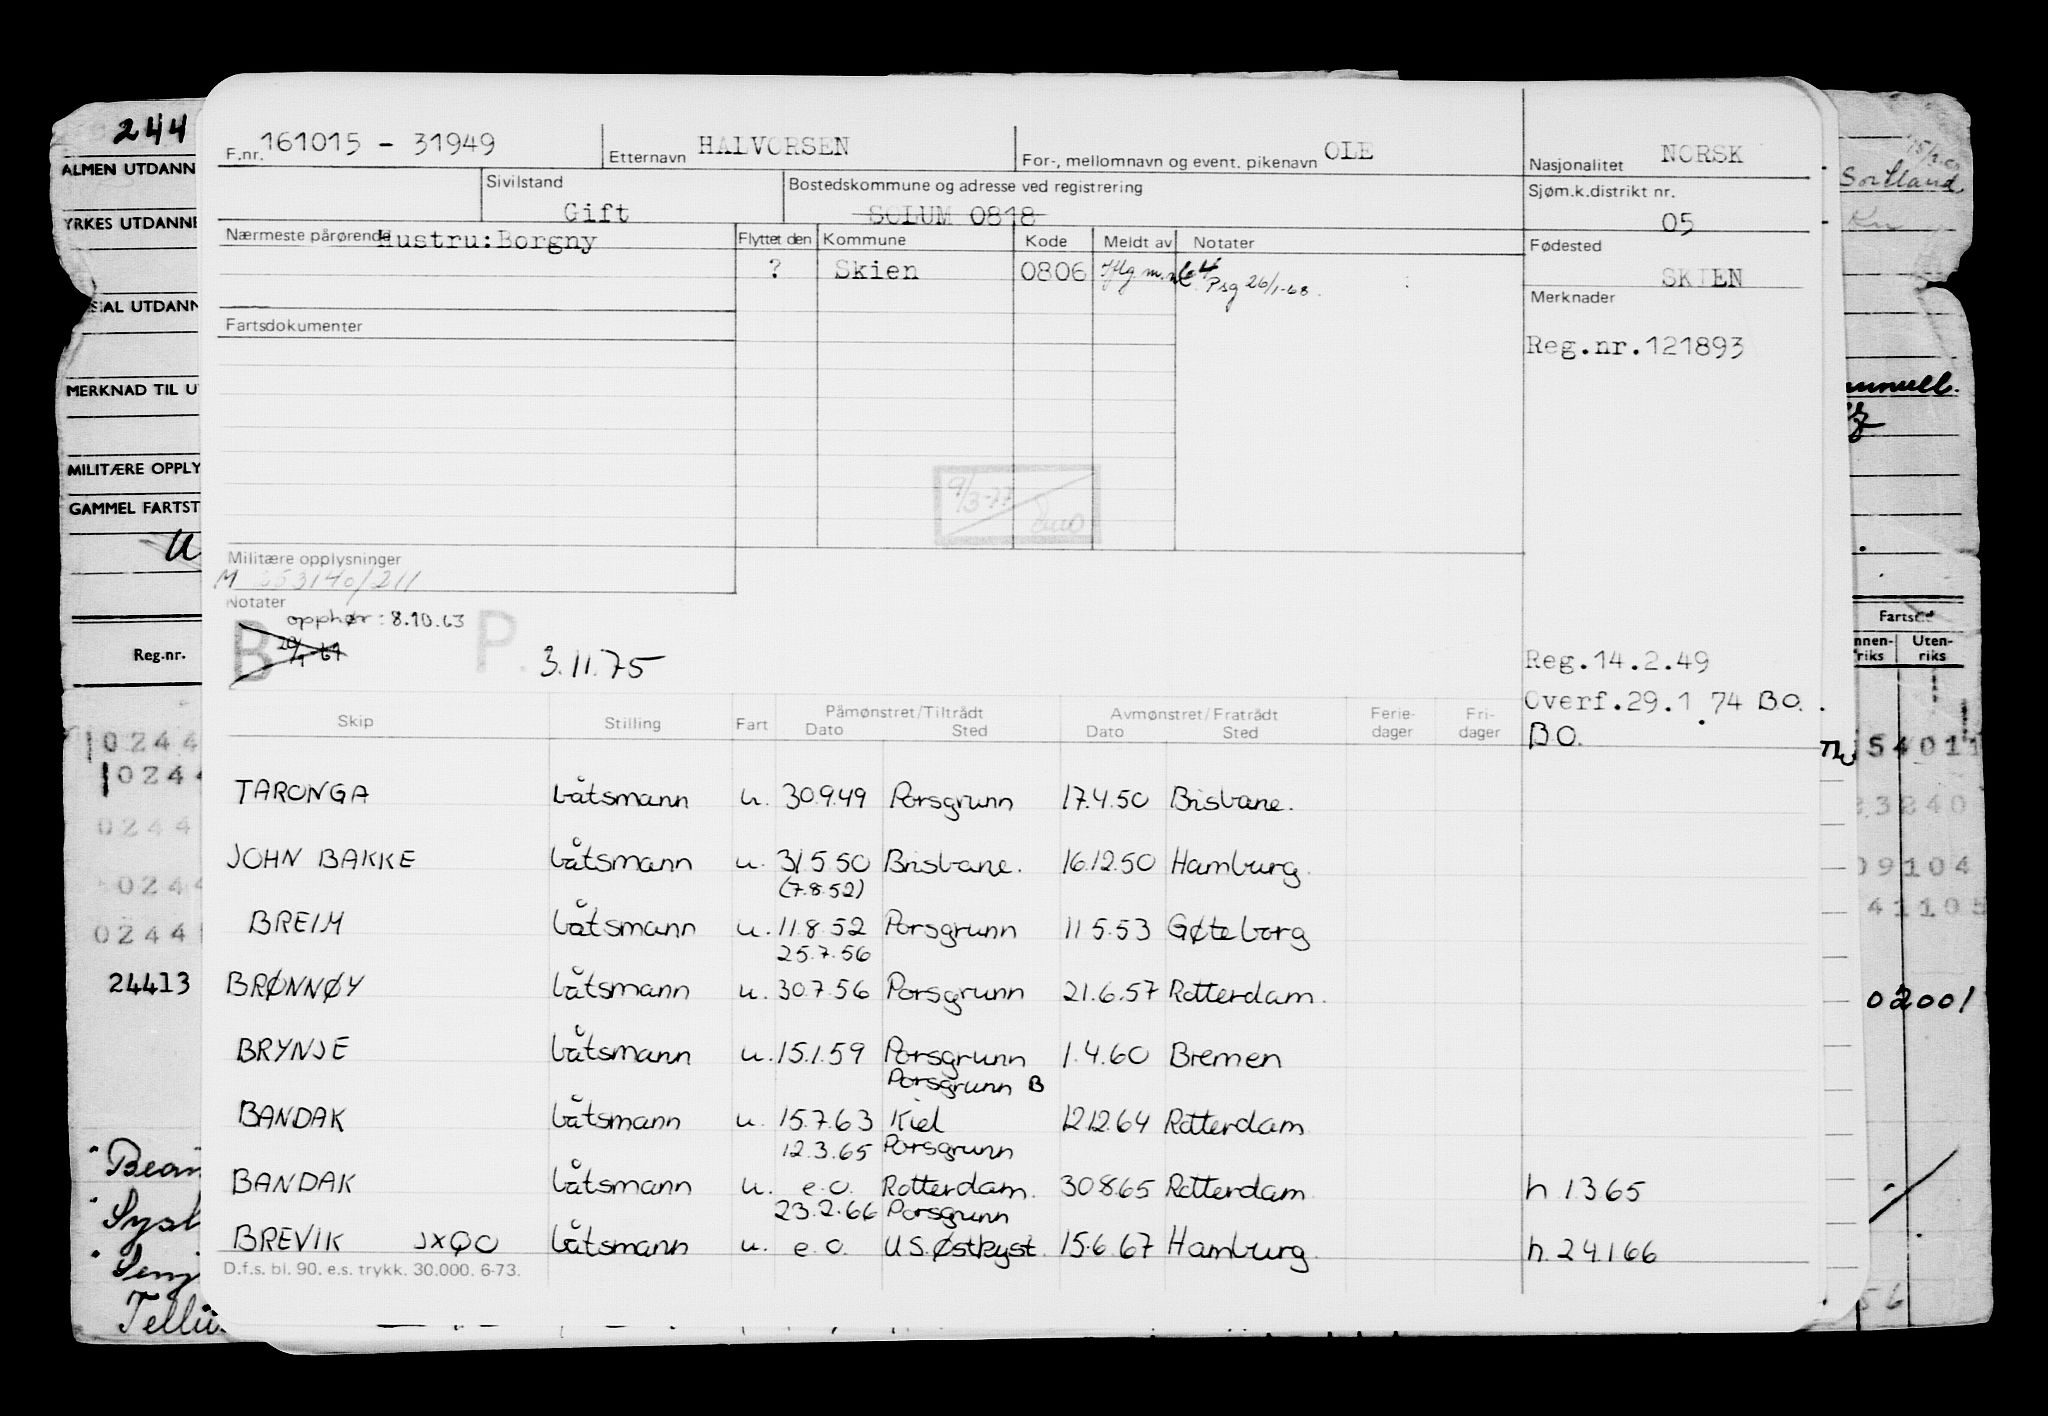 244
ALMEN UTDANN
YRKES UTDANNE
SIAL UTDANN
MERKNAD TIL U
MILITÆRE OPPLY
GAMMEL FARTST
Reg.nr.
0244
0244
0244
0244
0244
24413
Tellu
F.nr. 161015 - 31949 Etternavn HALVORSEN For-, mellomnavn og event. pikenavn OLE Nasjonalitet NORSK
Sivilstand Gift Bostedskommune og adresse ved registrering SOLUM 0818 Sjøm.k.distrikt nr. 05
Nærmeste pårørende Hustru: Borgny Flyttet den Kommune Kode Meldt av Notater Fødested SKIEN
? Skien 0806 Psg 26/1-68.
Merknader
Fartsdokumenter
Reg.nr.121893
9/3-77
Militære opplysninger
M 253140/211
Notater
opphør: 8.10.63
B P. 3.11.75
Reg.14.2.49
Overf.29.1.74 B.O.
BO.
Skip Stilling Fart Påmønstret/Tiltrådt Dato Sted Avmønstret/Fratrådt Dato Sted Ferie-dager Fri-dager
TARONGA båtsmann u. 30.9.49 Porsgrunn 17.4.50 Brisbane.
JOHN BAKKE båtsmann u. 31.5.50 Brisbane. 16.12.50 Hamburg.
(7.8.52)
BREIM båtsmann u. 11.8.52 Porsgrunn 11.5.53 Gøteborg
25.7.56
BRØNNØY båtsmann u. 30.7.56 Porsgrunn 21.6.57 Rotterdam.
BRYNJE båtsmann u. 15.1.59 Porsgrunn 1.4.60 Bremen
Porsgrunn B
BANDAK båtsmann u. 15.7.63 Kiel 12.12.64 Rotterdam
12.3.65 Porsgrunn
BANDAK båtsmann u. e.o. Rotterdam. 30.8.65 Rotterdam h 1.3.65
23.2.66 Porsgrunn
BREVIK JXQO båtsmann u. e.o. U.S. Østkyst. 15.6.67 Hamburg. h. 24.1.66
D.f.s. bl. 90. e.s. trykk. 30.000. 6-73.
Sortland
Fartstid
nnen-riks Uten-riks
54011
23240
09104
41105
02001
56